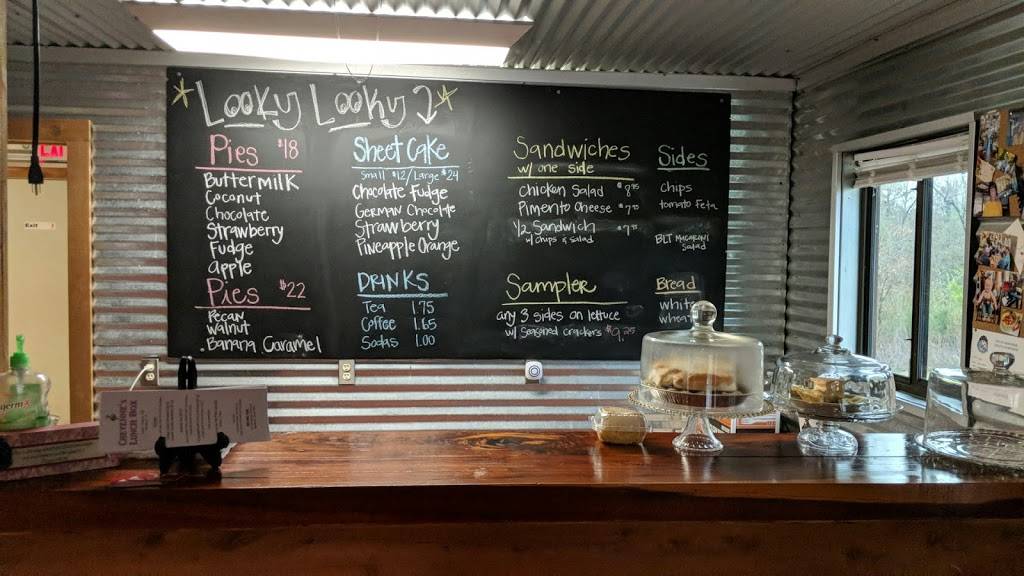 Looky Looky
Pies $18
Buttermilk
Coconut
Chocolate
Strawberry
Fudge
apple
Pies $22
Pecan
walnut
Banana Caramel
Sheet Cake
Small $12/Large $24
Chocolate Fudge
German Chocolate
Strawberry
Pineapple Orange
DRINKS
Tea 1.75
Coffee 1.65
Sodas 1.00
Sandwiches
w/ one side
Chicken Salad
Pimento Cheese
1/2 Sandwich
w/ chips & salad
Sampler
any 3 sides on lettuce
w/ seasoned crackers $9.25
Sides
chips
tomato Feta
BLT Macaroni
Salad
Bread
white
wheat
Exit
LUNCH BOX